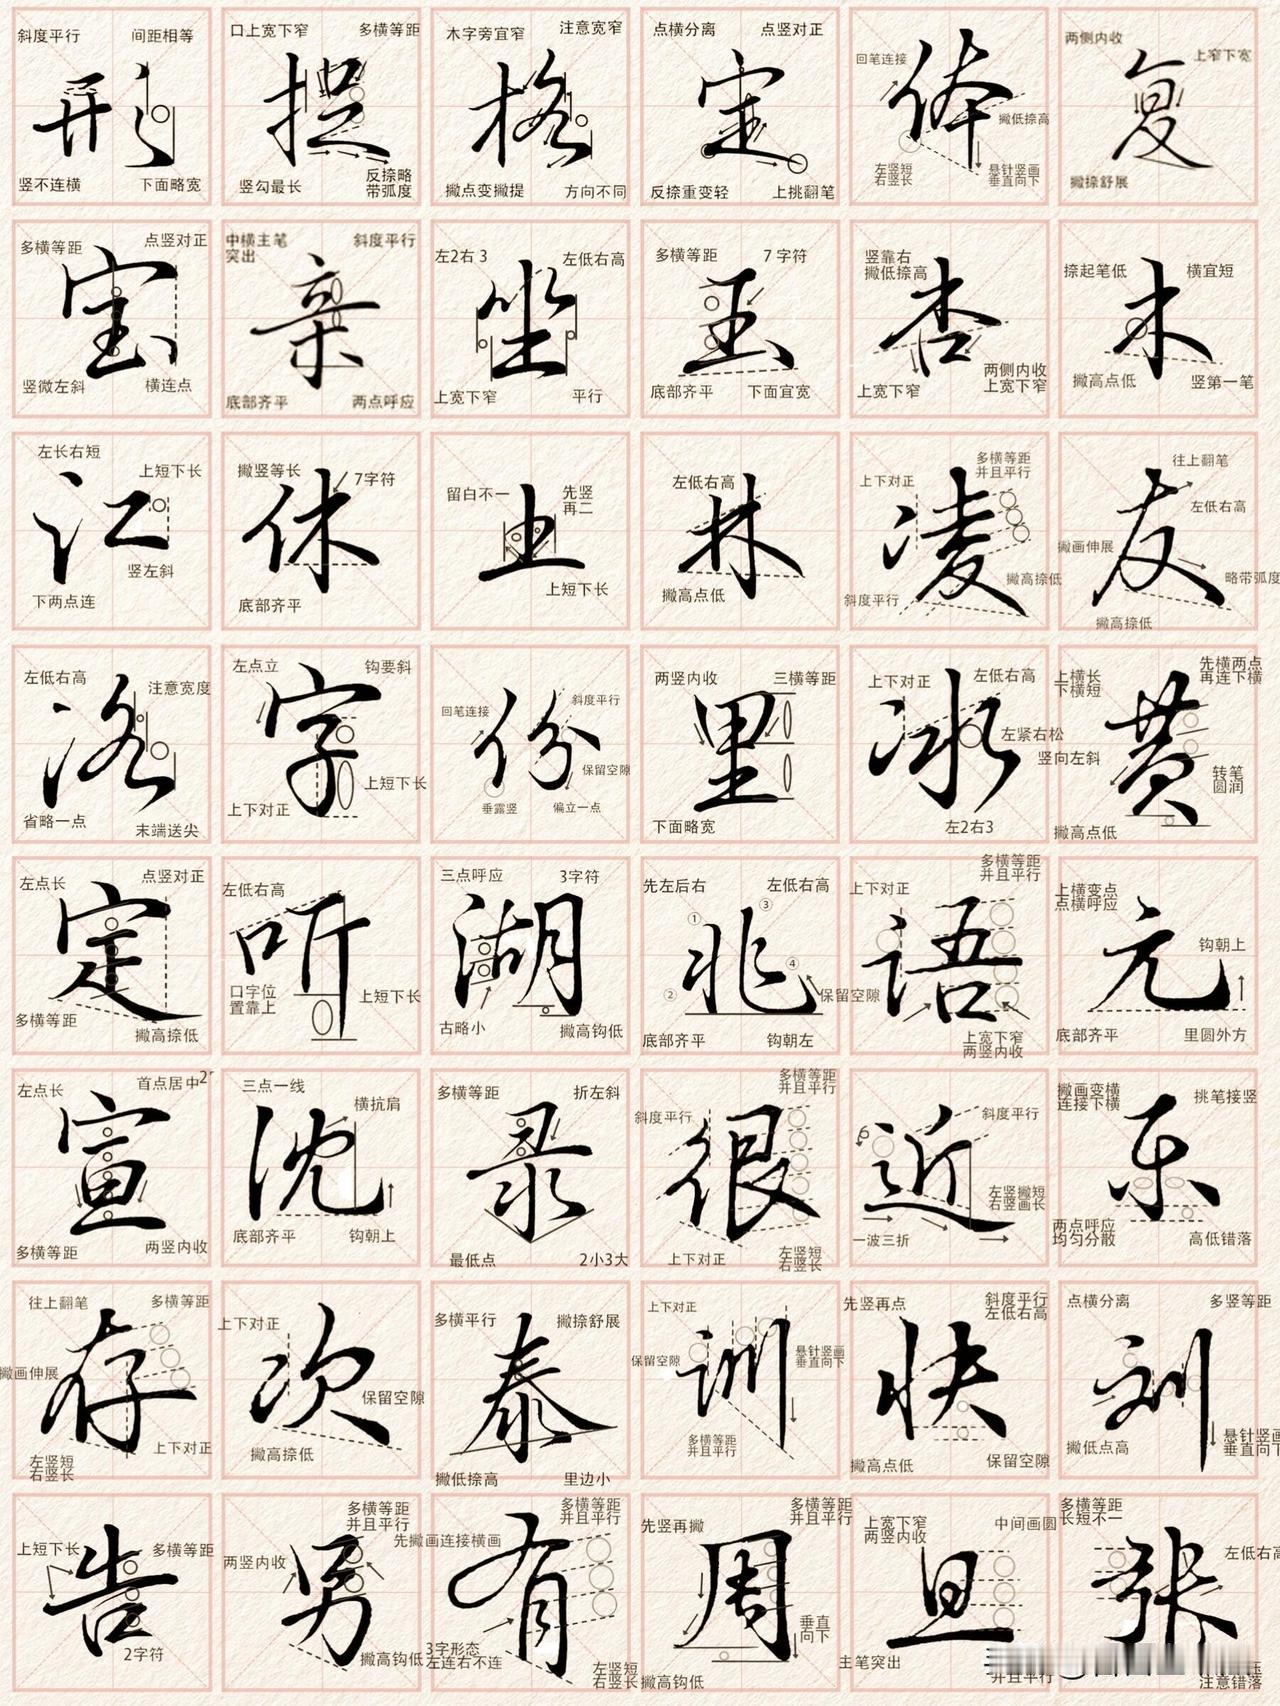 斜度平行 间距相等
形
竖不连横 下面略宽
口上宽下窄 多横等距
捉
竖勾最长 反捺略
带弧度
木字旁宜窄 注意宽窄
格
撇点变撇提 方向不同
点横分离 点竖对正
定
反捺重变轻 上挑翻笔
回笔连接
体
撇低捺高
左竖短
右竖长
悬针竖画
垂直向下
两侧内收
上窄下宽
复
撇捺舒展
多横等距 点竖对正
宝
竖微左斜 横连点
中横主笔
突出
斜度平行
亲
底部齐平 两点呼应
左2右3 左低右高
坐
上宽下窄 平行
多横等距 7字符
玉
底部齐平 下面宜宽
竖靠右
撇低捺高
杏
上宽下窄
两侧内收
上宽下窄
捺起笔低 横宜短
木
撇高点低 竖第一笔
左长右短
上短下长
江
竖左斜
下两点连
撇竖等长 7字符
休
底部齐平
留白不一
先竖
再二
止
上短下长
左低右高
林
撇高点低
多横等距
并且平行
上下对正
凌
撇高捺低
斜度平行
往上翻笔
左低右高
友
撇画伸展
略带弧度
撇高捺低
左低右高
注意宽度
洛
省略一点 末端送尖
左点立 钩要斜
字
上短下长
上下对正
回笔连接 斜度平行
份
保留空隙
垂露竖 偏立一点
两竖内收 三横等距
里
下面略宽
上下对正 左低右高
冰
左紧右松
左2右3
上横长
下横短
先横两点
再连下横
黄
竖向左斜
转笔
圆润
撇高点低
左点长 点竖对正
定
多横等距 撇高捺低
左低右高
听
口字位
置靠上
上短下长
三点呼应 3字符
湖
古略小 撇高钩低
先左后右 左低右高
①
③
兆
④
②
保留空隙
底部齐平 钩朝左
多横等距
并且平行
上下对正
语
上宽下窄
两竖内收
上横变点
点横呼应
元
钩朝上
底部齐平 里圆外方
左点长 首点居中
宣
多横等距 两竖内收
三点一线
横抗肩
沈
底部齐平 钩朝上
多横等距 折左斜
录
最低点 2小3大
多横等距
并且平行
斜度平行
很
上下对正
左竖短
右竖长
斜度平行
近
左竖撇短
右竖画长
一波三折
撇画变横
连接下横
挑笔接竖
乐
两点呼应
均匀分散
高低错落
往上翻笔 多横等距
存
撇画伸展
左竖短
右竖长
上下对正
上下对正
次
保留空隙
撇高捺低
多横平行 撇捺舒展
泰
撇低捺高 里边小
上下对正
保留空隙
训
悬针竖画
垂直向下
多横等距
并且平行
先竖再点
斜度平行
左低右高
快
撇高点低 保留空隙
点横分离 多竖等距
刘
撇低点高
悬针竖画
垂直向下
上短下长 多横等距
告
2字符
多横等距
并且平行
两竖内收
男
撇高钩低
多横等距
并且平行
先撇画连接横画
有
3字形态
左连右不连
左竖短
右竖长
多横等距
并且平行
先竖再撇
周
垂直
向下
撇高钩低
上宽下窄
两竖内收
中间画圆
旦
主笔突出
并且平行
多横等距
长短不一
左低右高
张
注意错落